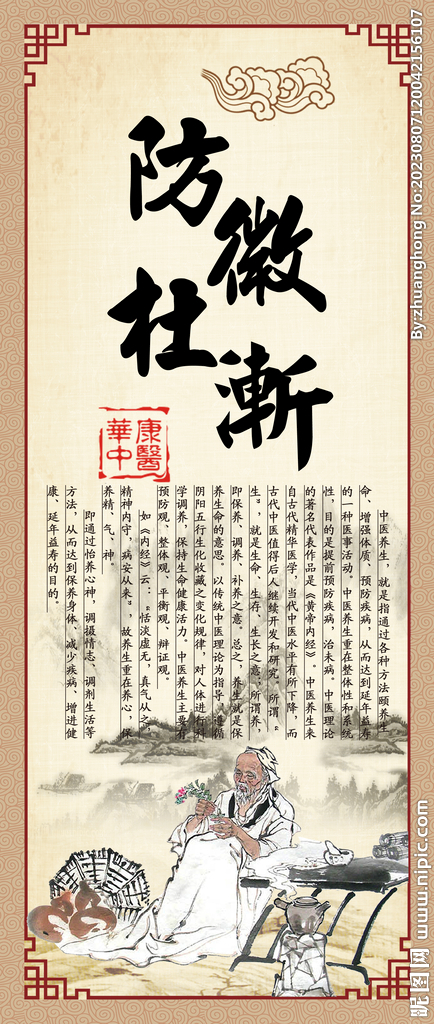 防
微
杜
漸
康醫
華中
中医养生，就是指通过各种方法颐养生
命、增强体质、预防疾病，从而达到延年益寿
的一种医事活动。中医养生重在整体性和系统
性，目的是提前预防疾病，治未病。中医理论
的著名代表作品是《黄帝内经》。中医养生来
自古代精华医学，当代中医水平有所下降，而
古代中医值得后人继续开发和研究。所谓“
生”，就是生命、生存、生长之意；所谓养，
即保养、调养、补养之意。总之，养生就是保
养生命的意思。以传统中医理论为指导，遵循
阴阳五行生化收藏之变化规律，对人体进行科
学调养，保持生命健康活力。中医养生主要有
预防观，整体观，平衡观，辩证观。
如《内经》云：“恬淡虚无，真气从之，
精神内守，病安从来”，故养生重在养心，保
养精、气、神。
即通过怡养心神，调摄情志、调剂生活等
方法，从而达到保养身体、减少疾病、增进健
康、延年益寿的目的。
By:zhuanghong No:20230807120042156107
昵图网 www.nipic.com